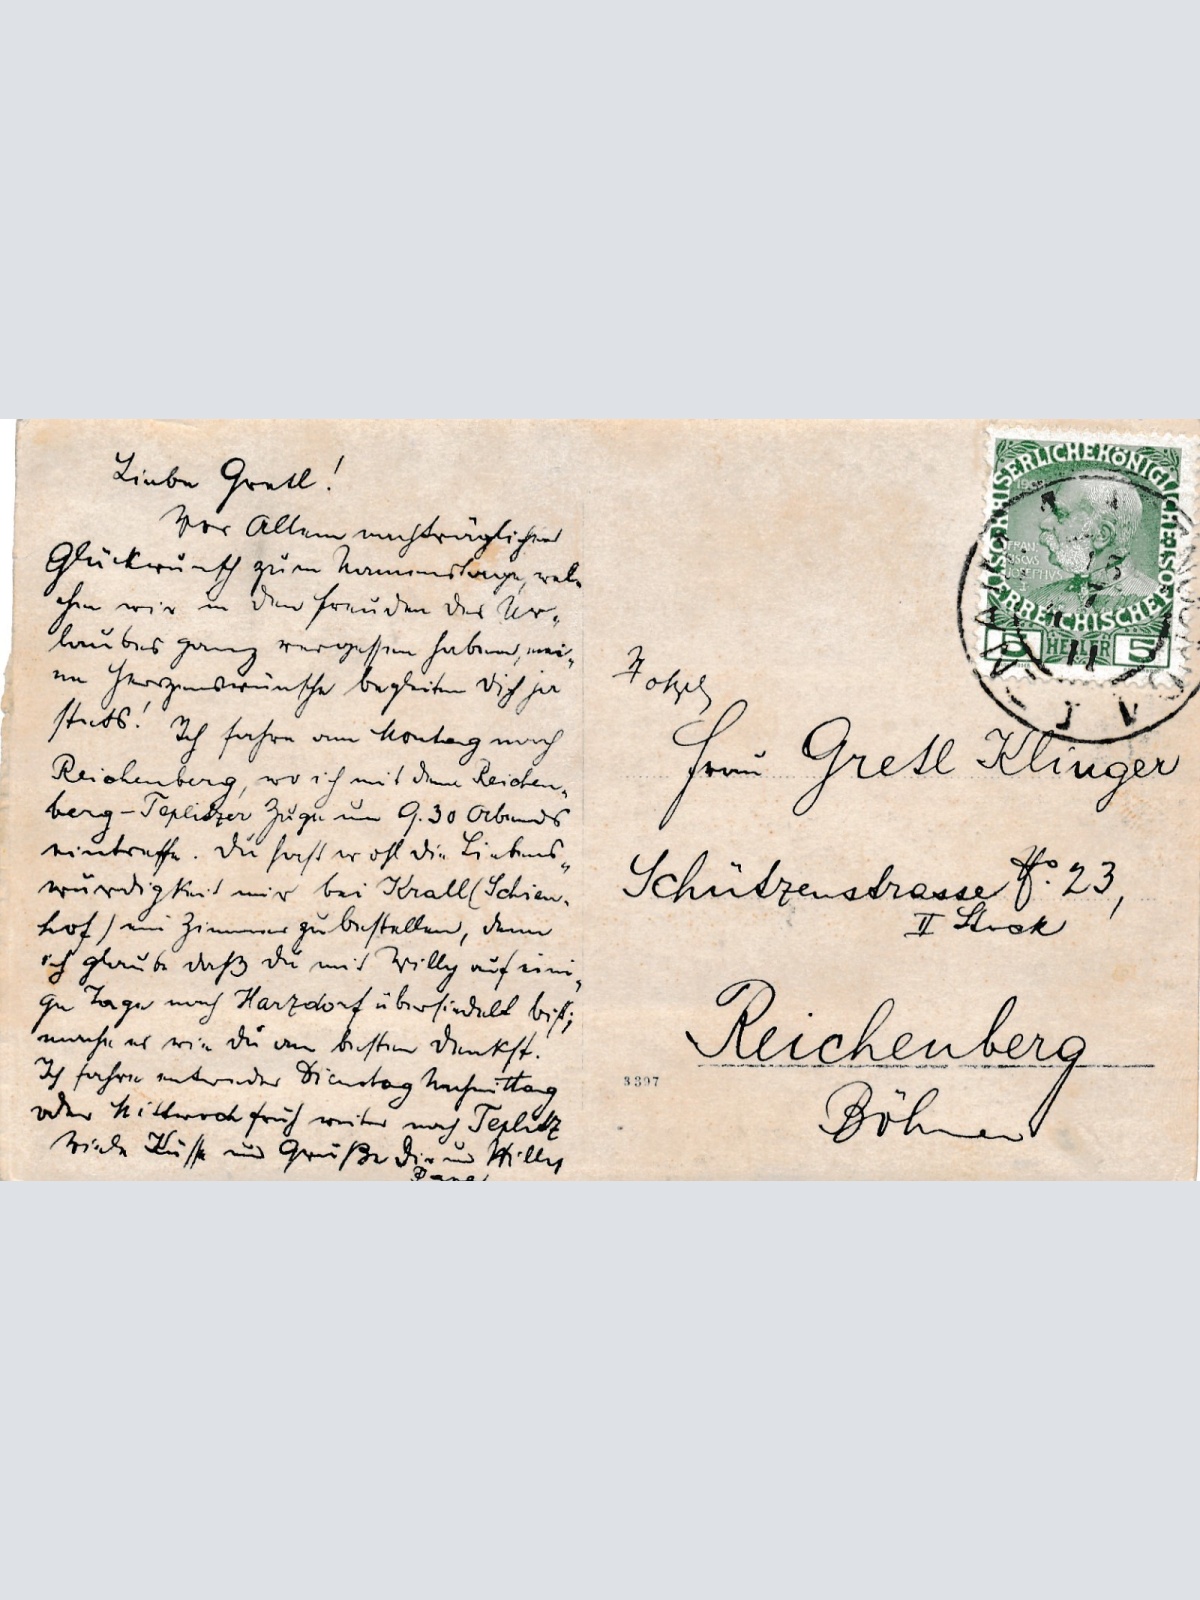 Liebe Gretl!
Vor Allem nachträglichen
Glückwunsch zum Namenstage, wel-
chen wir in den Freuden des Ur-
laubes ganz vergessen haben, mei-
ne Herzenswünsche begleiten Dich ja
stets! Ich fahre am Montag nach
Reichenberg, wo ich mit dem Reichen-
berg-Teplitzer Zuge um 9.30 Abends
eintreffe. Du hast wohl die Liebens-
würdigkeit mir bei Krall (Schien-
hof) ein Zimmer zu bestellen, denn
ich glaube daß du mit Willy auf eini-
ge Tage nach Harzdorf übersiedelt bist;
mache es wie du am besten denkst.
Ich fahre entweder Dienstag Nachmittag
oder Mittwoch früh weiter nach Teplitz
Viele Küsse und Grüße Dir und Willy
KAISERLICHE KÖNIGLICHE
ÖSTERREICHISCHE POST
1908
FRAN
CISCVS
JOSEPHVS
5 HELLER 5
13
7
11
Frau Gretl Klinger
Schützenstrasse No. 23,
II Stock
Reichenberg
Böhmen
3397